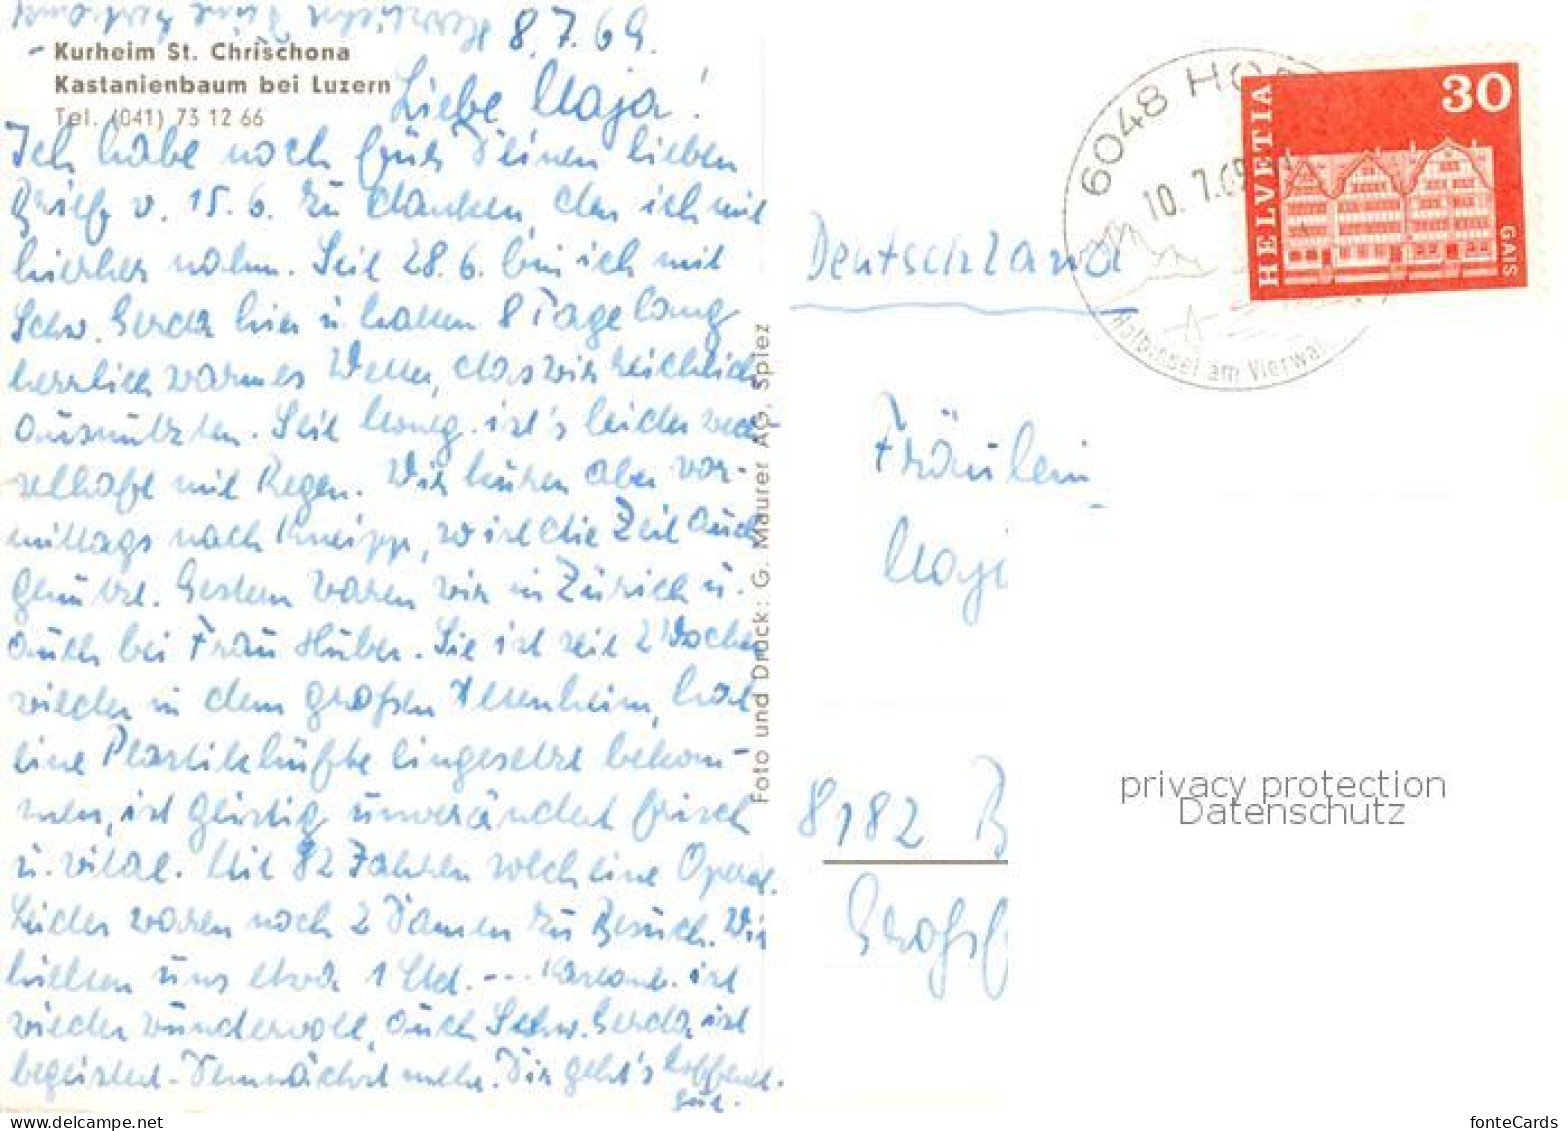 8.7.69.
Kurheim St. Chrischona
Kastanienbaum bei Luzern
Tel. (041) 73 12 66
Liebe Maja!
Ich habe noch für Deinen lieben
Brief v. 15.6. zu danken, den ich mit
hierher nahm. Seit 28.6. bin ich mit
Schw. Gerda hier u. hatten 8 Tage lang
herrlich warmes Wetter, das wir reichlich
ausnützten. Seit Montg. ist's leider wech
selhaft mit Regen. Wir kuren aber vor-
mittags nach Kneipp, so ist die Zeit auch
genützt. Gestern waren wir in Zürich u.
auch bei Frau Huber. Sie ist seit 2 Wochen
wieder in dem großen Altenheim, hat
eine Plastikhüfte eingesetzt bekom-
men, ist geistig unverändert frisch
u. vital. Mit 82 Jahren solch eine Operat.
Leider waren noch 2 Damen zu Besuch. Wir
hielten uns etwa 1 Std. --- ist
wieder wundervoll, auch Schw. Gerda ist
begeistert. Demnächst mehr. Dir geht's hoffentl.
gut.
Herzliche
Foto und Druck: G. Maurer AG, Spiez
6048 HO
10.7.69
Halbinsel am Vierwal
HELVETIA
30
GAIS
Deutschland
Fräulein
Maja
8182 B
privacy protection
Datenschutz
www.delcampe.net
fonteCards